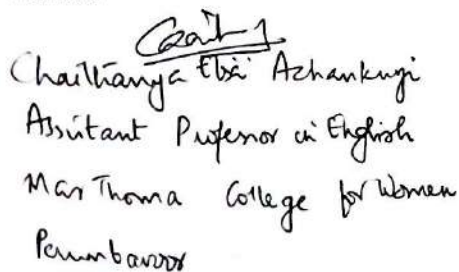 Chaithanya Elsa Achankunju
Assistant Professor in English
Mar Thoma College for Women
Perumbavoor